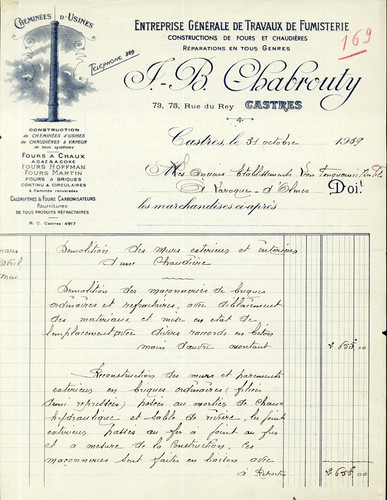 CHEMINÉES D'USINES
ENTREPRISE GÉNÉRALE DE TRAVAUX DE FUMISTERIE
CONSTRUCTIONS DE FOURS ET CHAUDIÈRES
RÉPARATIONS EN TOUS GENRES
169
TÉLÉPHONE
J.-B. Chabrouty
78, 78, Rue du Rey CASTRES
CONSTRUCTION
DE CHEMINÉES D'USINES
DE CHAUDIÈRES À VAPEUR
de tous systèmes
FOURS A CHAUX
A GAZ & COKE
FOURS HOFFMAN
FOURS MARTIN
FOURS A BRIQUES
CONTINU & CIRCULAIRES
à flammes renversées
CALORIFÈRES & FOURS CARBONISATEURS
Fournitures
DE TOUS PRODUITS RÉFRACTAIRES
R. C. Castres 4917
Castres, le 31 octobre 1939
Etablissements
à Laroque-d'Olmes Doit
les marchandises ci-après
Démolition des murs extérieurs et intérieurs
d'une Chaudière
Démolition des maçonneries de briques
ordinaires et réfractaires, avec déblaiement
des matériaux et mise en état de
l'emplacement avec divers raccords en béton
main d'œuvre montant
Reconstruction des murs et parements
extérieurs en briques ordinaires (filières
demi repressées) posées au mortier de chaux
hydraulique et sable de rivière, les joints
extérieurs passés au fer à joint au fur
et à mesure de la Construction, Ces
maçonneries sont faites en liaison avec
à Reporter